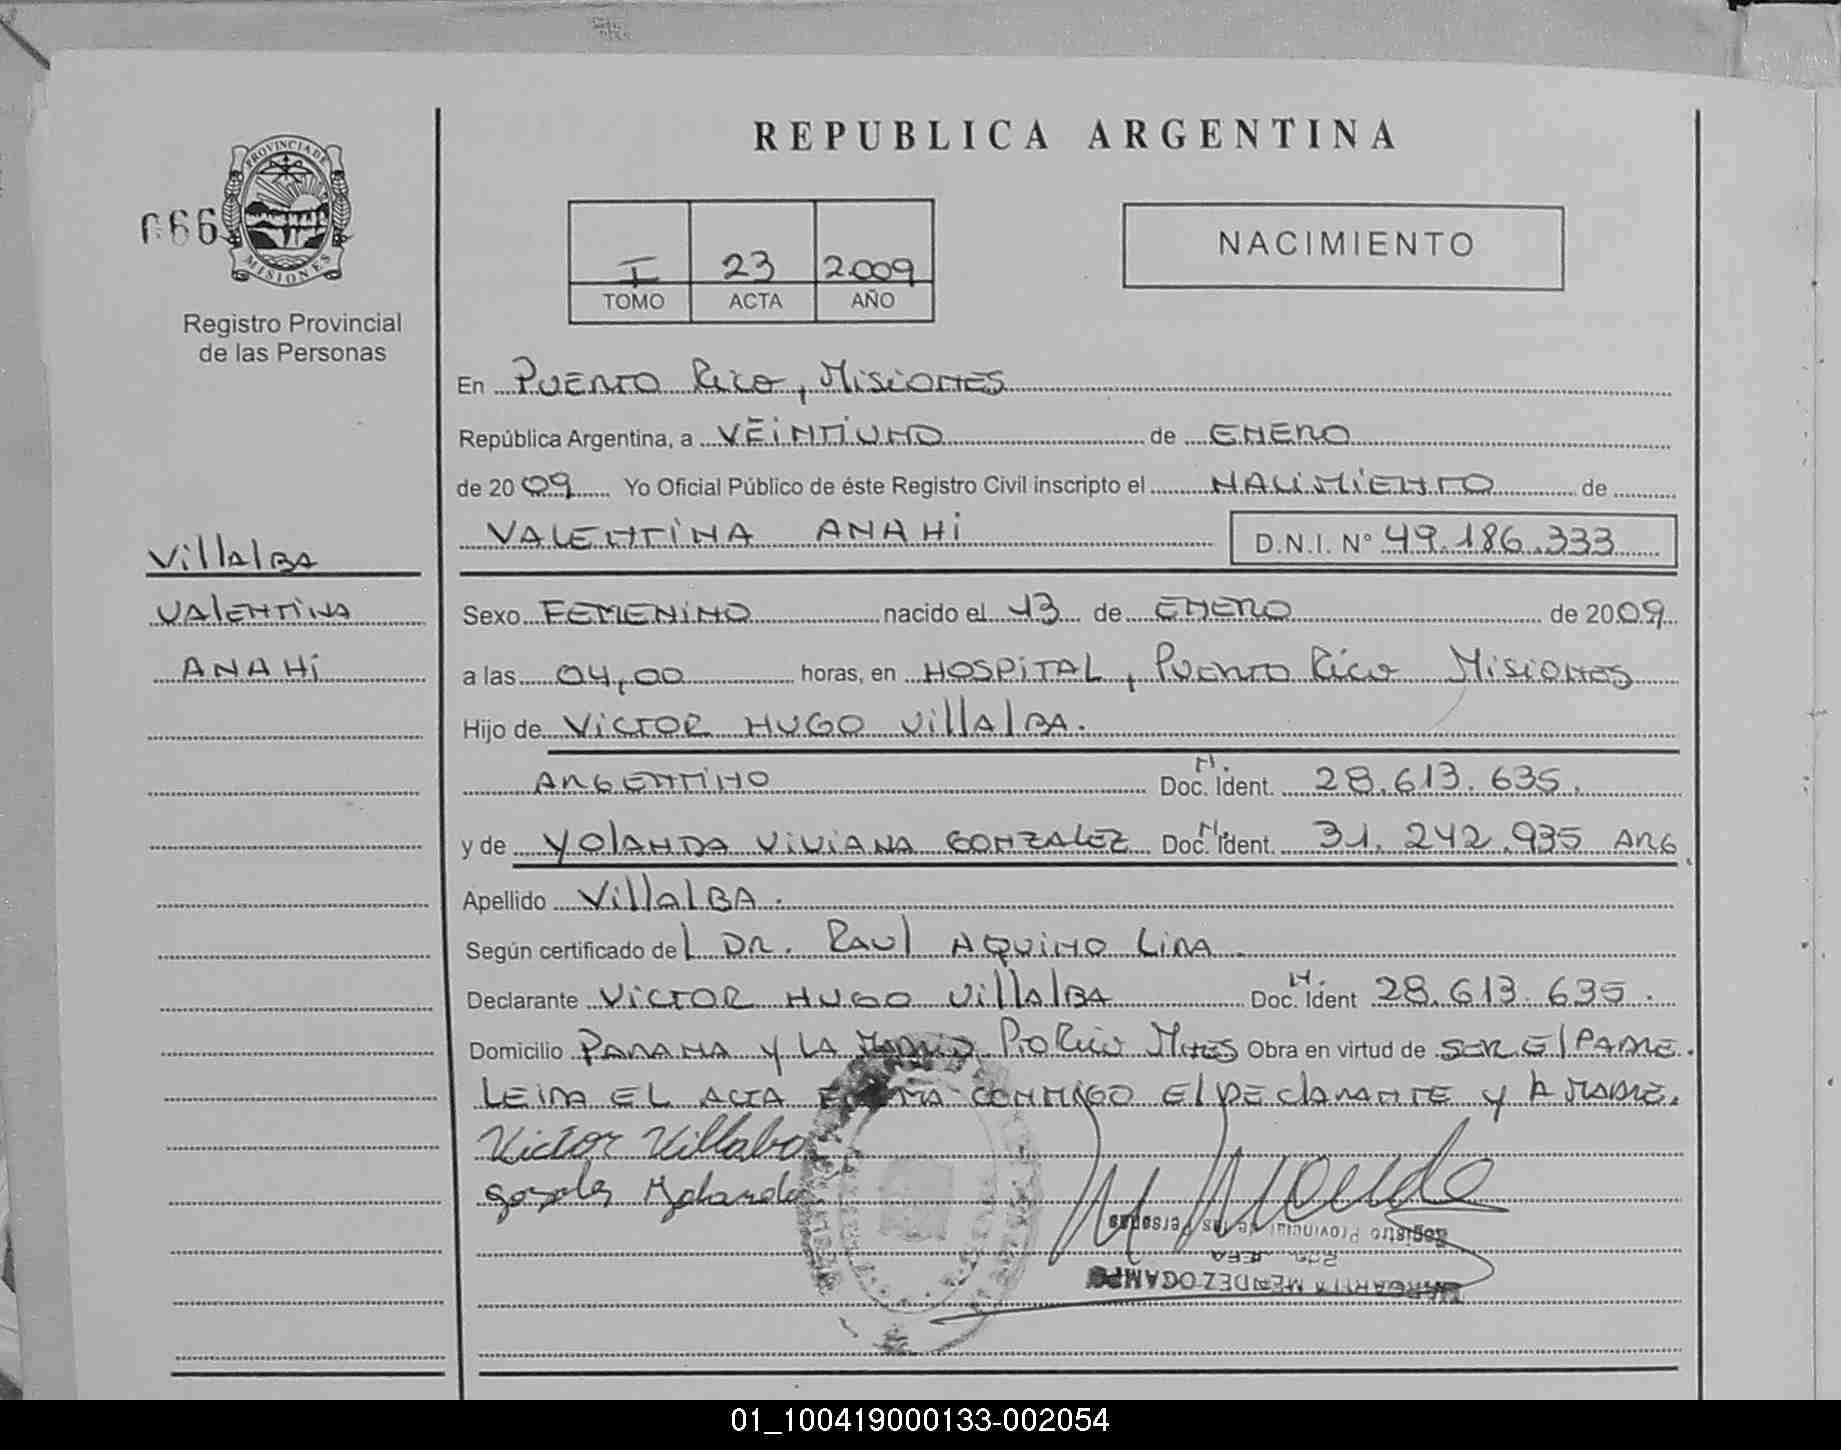 REPUBLICA ARGENTINA
PROVINCIA DE
MISIONES
066
Registro Provincial
de las Personas
I 23 2.009
TOMO ACTA AÑO
NACIMIENTO
En PUERTO RICO, MISIONES
República Argentina, a VEINTIUNO de ENERO
de 20 09 Yo Oficial Público de éste Registro Civil inscripto el NACIMIENTO de
VALENTINA ANAHI D.N.I. N° 49.186.333
VillAlBA
VAlENTINA
ANAHI
Sexo FEMENINO nacido el 13 de ENERO de 2009
a las 04,00 horas, en HOSPITAL, PUERTO RICO MISIONES
Hijo de VICTOR HUGO VillAlBA.
ARGENTINO Doc. N. Ident. 28.613.635.
y de YOlANDA VIVIANA GONZALEZ Doc. N. Ident. 31.242.935 ARG.
Apellido VillAlBA.
Según certificado del DR. RAUl AQUINO LIRA
Declarante VICTOR HUGO VillAlBA Doc. N. Ident 28.613.635.
Domicilio PARANA Y LA Pto Rico Mnes Obra en virtud de SER El PADRE.
LEIDA EL ACTA FIRMA CONMIGO El DEClARANTE Y lA MADRE.
Victor Villalba
Yolanda
Registro Provincial de las Personas
JEFA
MARGARITA MENDEZ OCAMPO
01_100419000133-002054